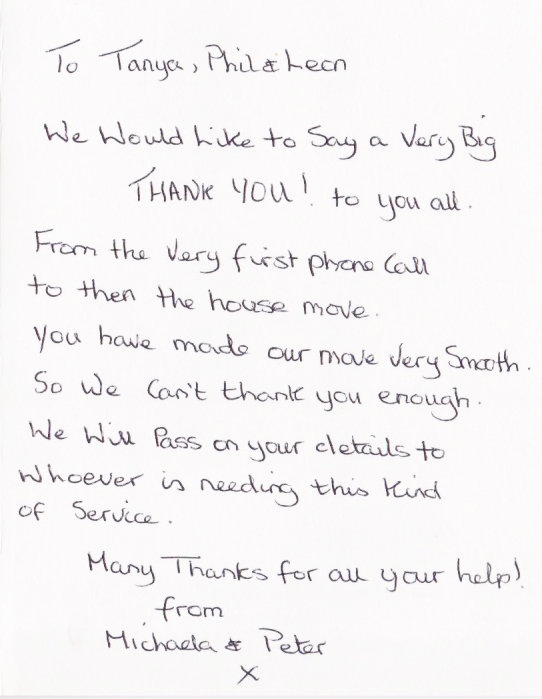 To Tanya, Phil & Leon
We Would Like to Say a Very Big
THANK YOU! to you all.
From the Very first phone Call
to then the house move.
You have made our move Very Smooth.
So We Can't thank you enough.
We Will Pass on your details to
Whoever is needing this Kind
of Service.
Many Thanks for all your help!
from
Michaela & Peter
X